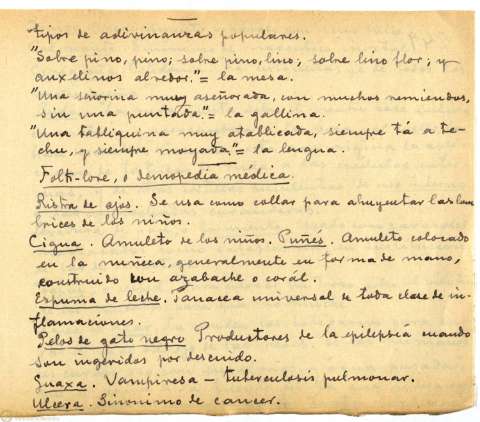 tipos de adivinanzas populares.
"Sobre pino, pino; sobre pino, lino; sobre lino flor; y
auxelinos alredor."= la mesa.
"Una señorina muy aseñorada, con muchos remiendos,
sin una puntada."= la gallina.
"Una tabliquina muy atablicada, siempre tá a te-
chu, y siempre moyada."= la lengua.
Folk-lore, o demopedia médica.
Ristra de ajos. Se usa como collar para ahuyentar las lom
brices de los niños.
Cigua. Amuleto de los niños. Puñés. Amuleto colocado
en la muñeca, generalmente en forma de mano,
construido con azabache o corál.
Espuma de leshe. Panacea universal de toda clase de in-
flamaciones.
Pelos de gato negro Productores de la epilepsiá cuando
son ingeridos por descuido.
Guaxa. Vampiresa – tuberculosis pulmonar.
Ulcera. Sinonimo de cancer.